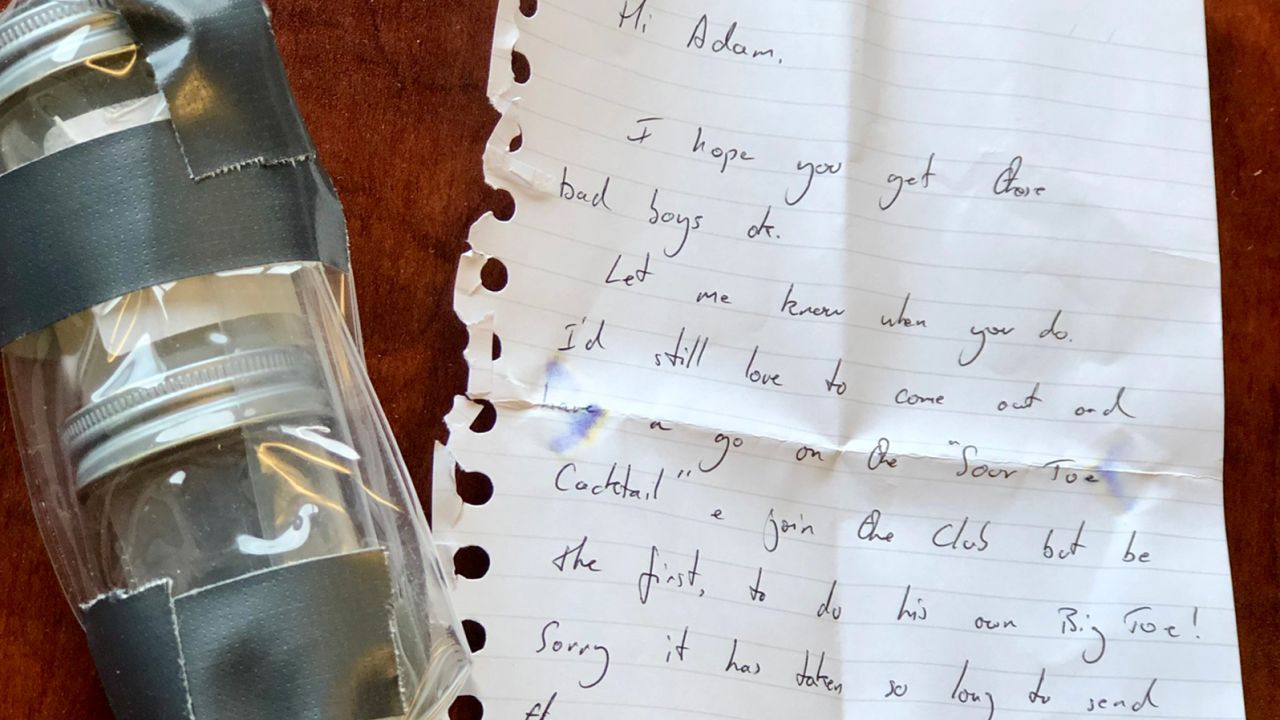 Hi Adam,
I hope you get these
bad boys ok.
Let me know when you do.
I'd still love to come out and
have a go on the "Sour Toe
Cocktail" & join the Club but be
the first, to do his own Big Toe!
Sorry it has taken so long to send